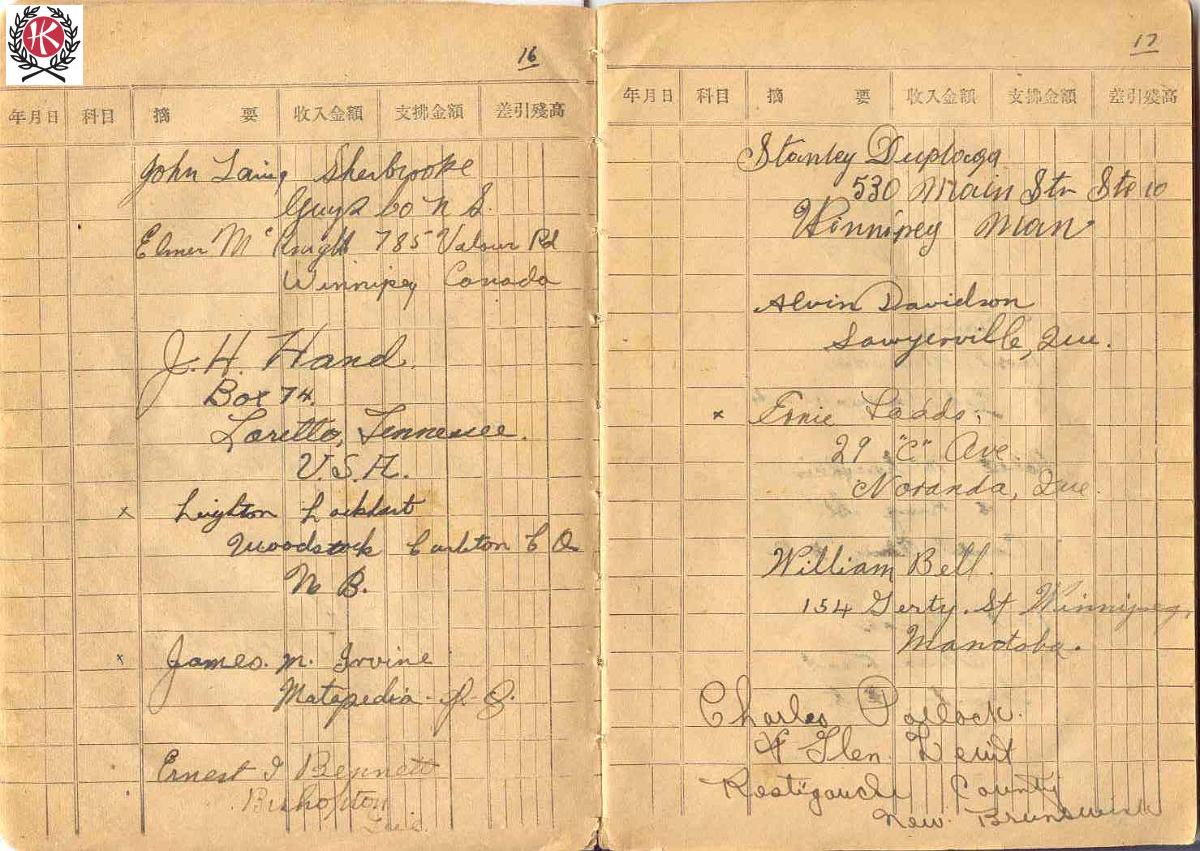 HK
16
年月日 科目 摘 要 收入金額 支拂金額 差引殘高
John Laing Sherbrooke
Guys Co N S.
Elmer McKnight 785 Valour Rd
Winnipeg Canada
J. H. Hand.
Box 74.
Loretto, Tennessee.
U.S.A.
x Leighton Lockhart
Woodstock Carleton C O
N B.
x James. M. Irvine
Matapedia - P. Q.
Ernest I Bennett
Bishopton
Que.
17
年月日 科目 摘 要 收入金額 支拂金額 差引殘高
Stanley
530 Main Str Ste 10
Winnipeg Man
Alvin Davidson
Sawyerville, Que.
x Ernie Ladds.
29 "C" Ave.
Noranda, Que.
William Bell.
154 Gerty. St Winnipeg,
Manotoba.
Charles
Glen
Restigouche County
New. Brunswick